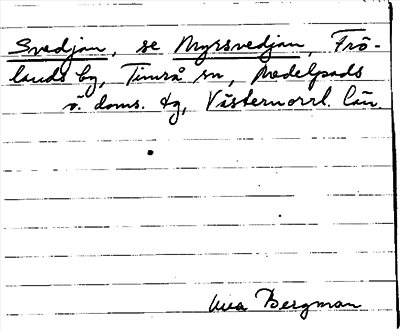 Svedjan, se Myrsvedjan, Frö-
lands by, Timrå sn, Medelpads
ö. doms. tg, Västernorrl. län.
Ewa Bergman